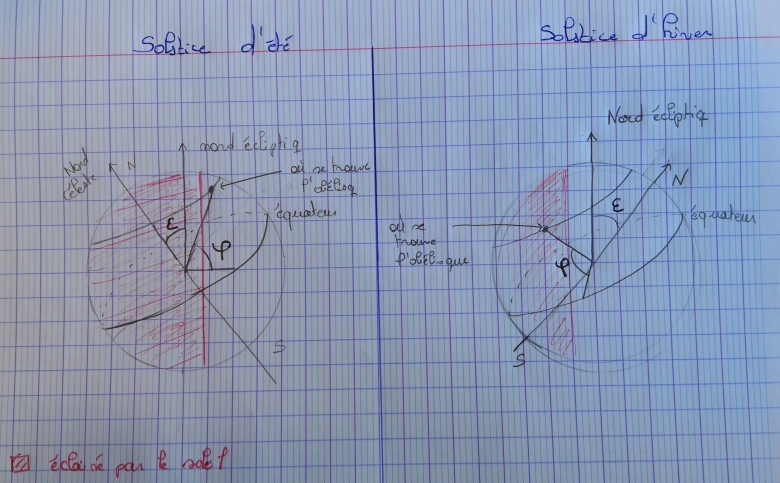 Solstice d'été
Solstice d'hiver
Nord céleste
N
nord écliptiq
où se trouve
l'obélisq
équateur
ε
φ
S
Nord écliptiq
N
ε
équateur
où se
trouve
l'obélisque
φ
S
éclairé par le soleil